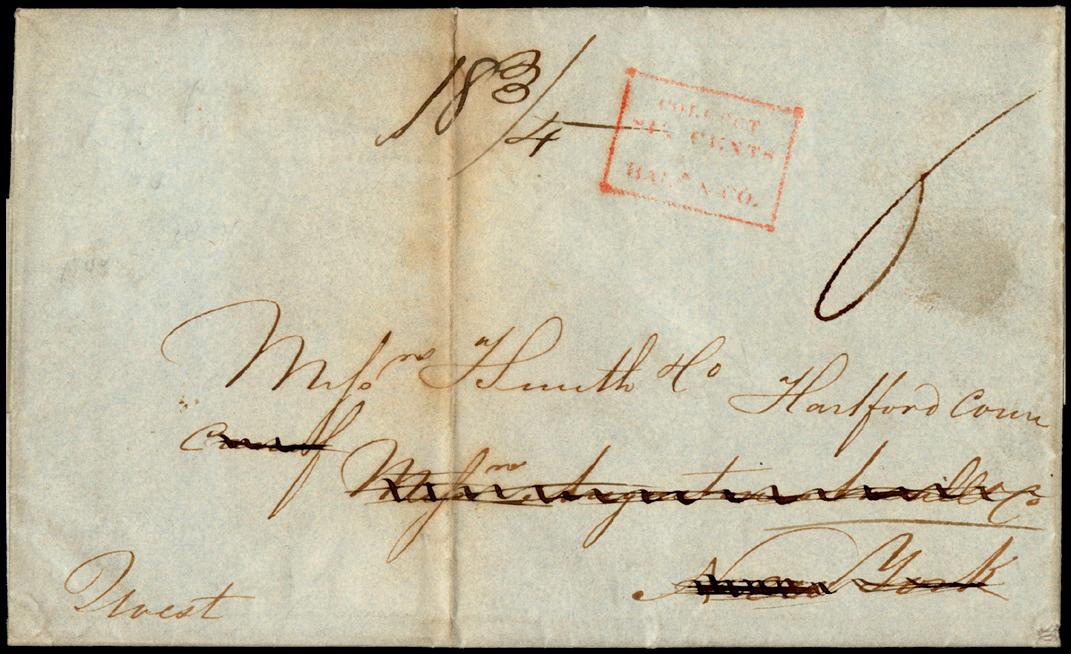 18 3/4
COLLECT
SIX CENTS
HALE & CO.
6
Messrs H Smith & Co Hartford Conn
care of
Messrs
New York
West